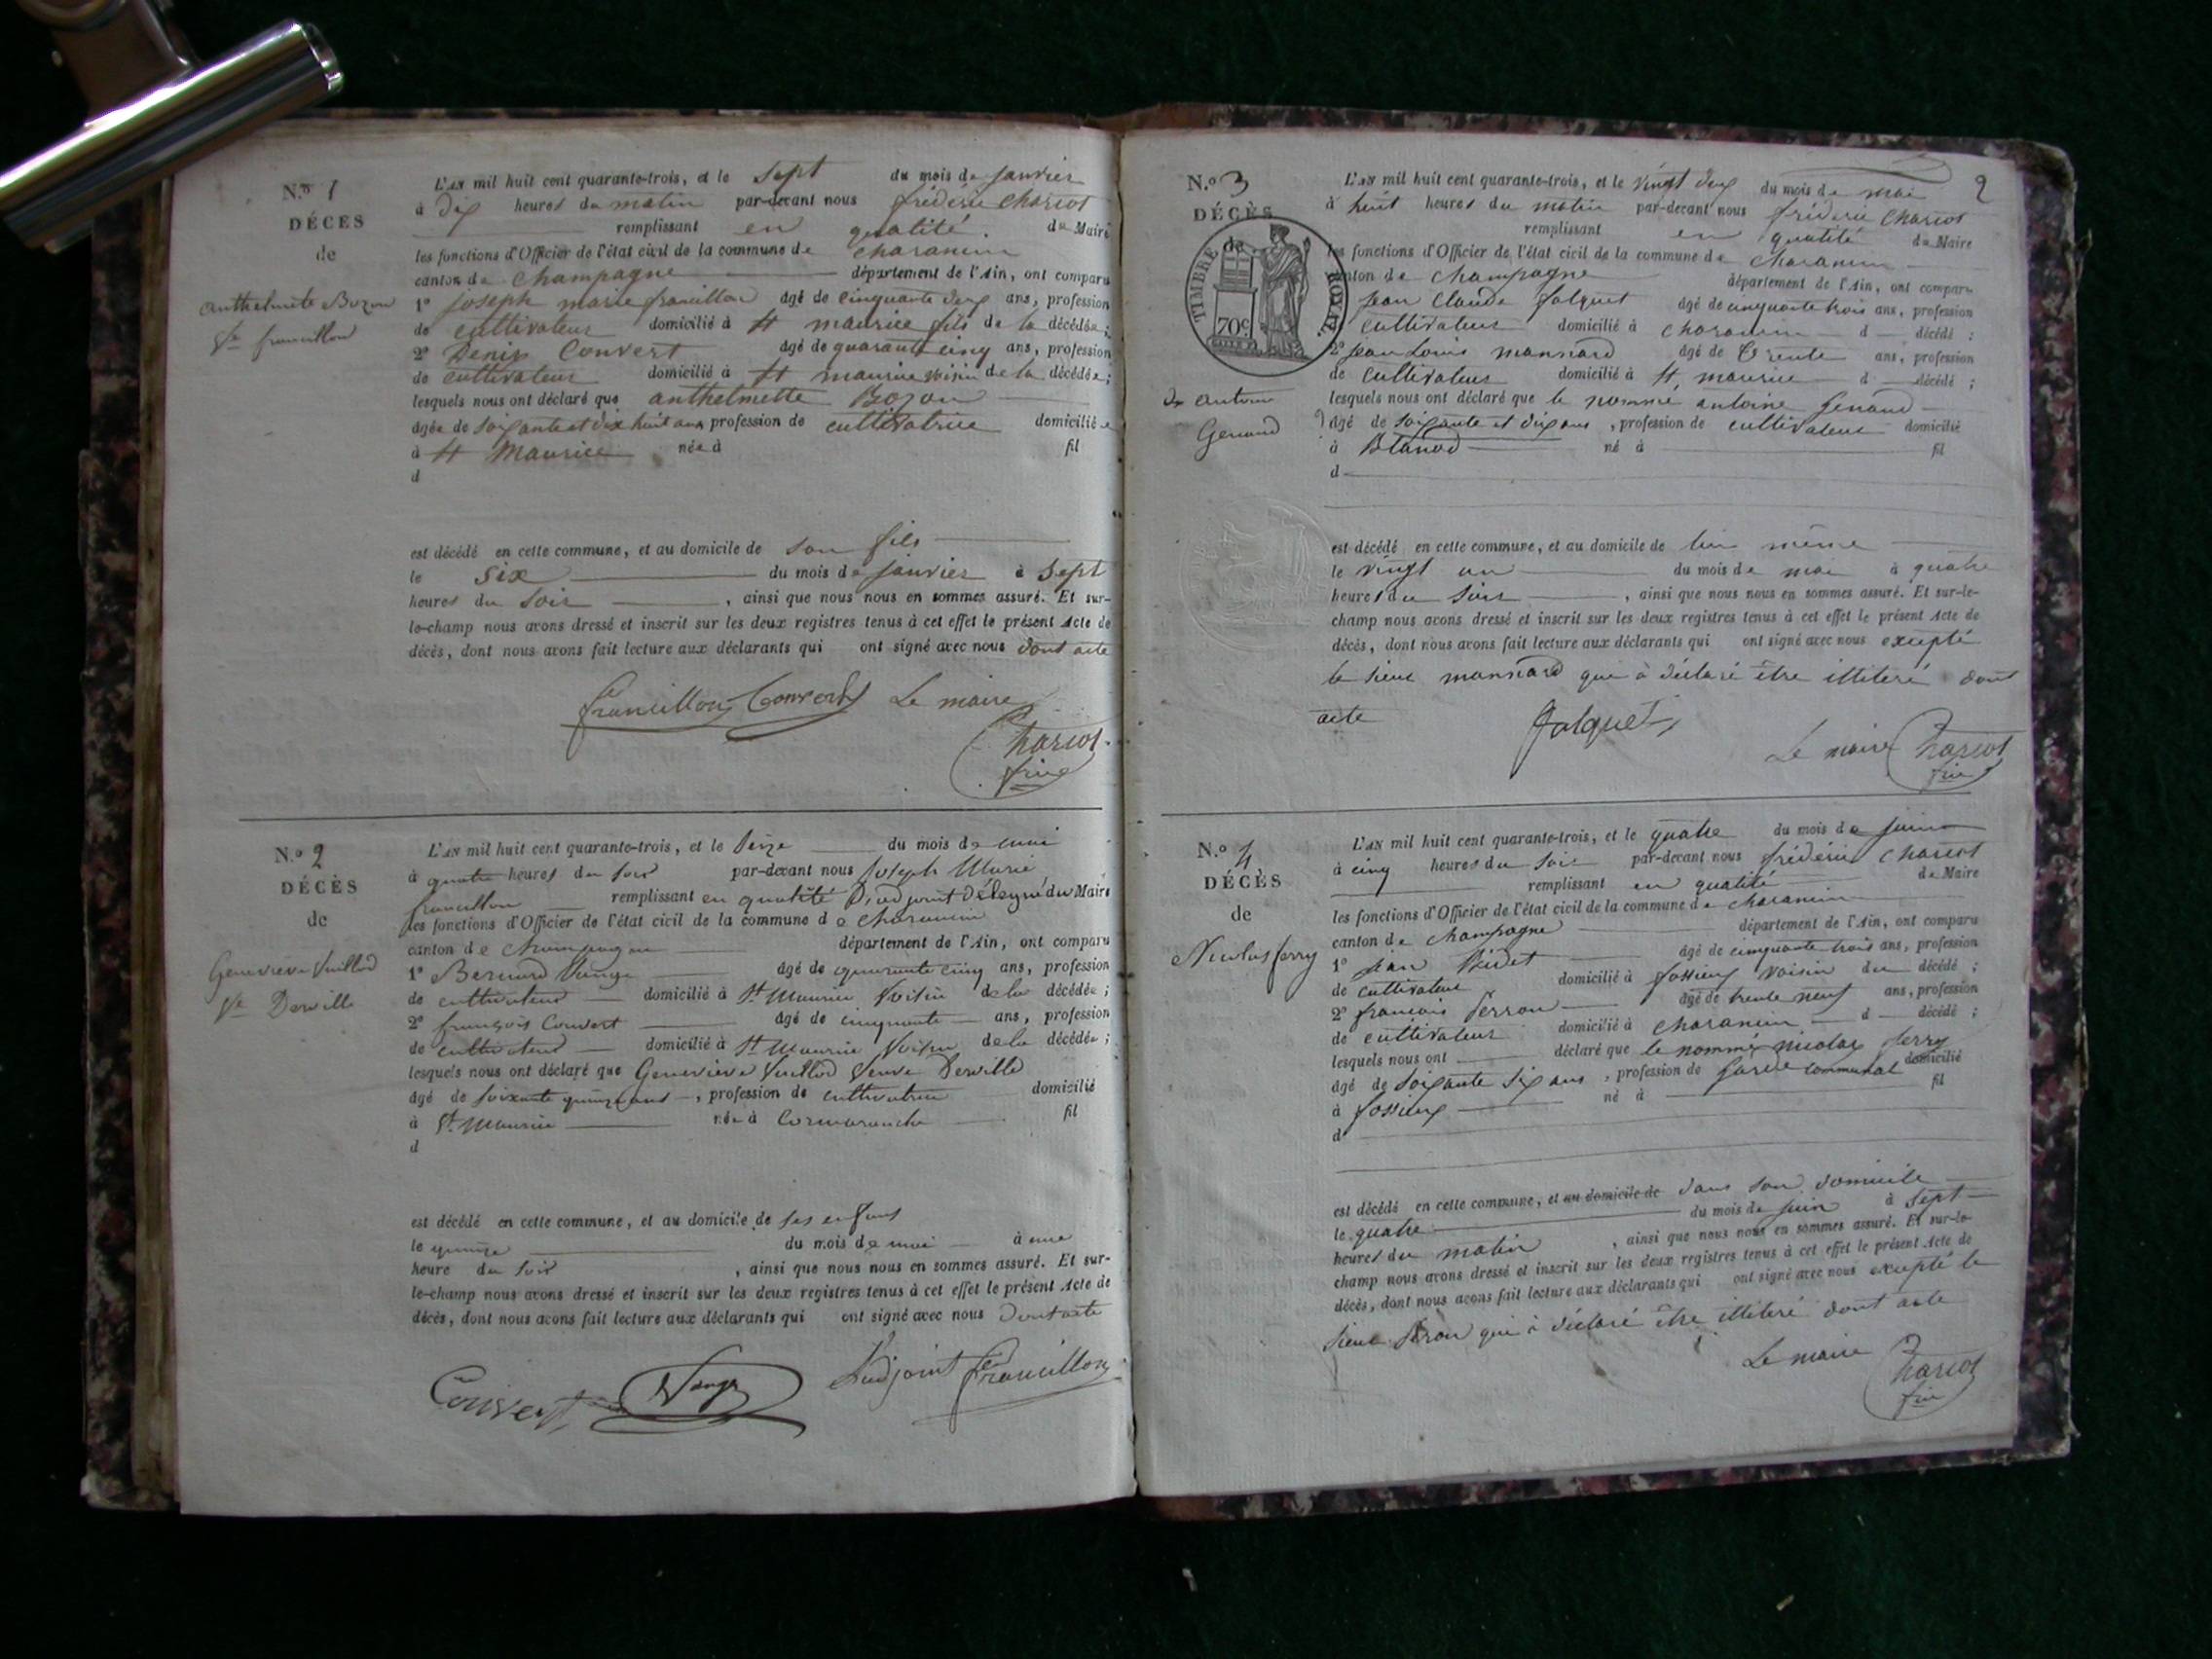 N.º 1
DÉCÈS
de
anthelmette Bozon
Ve francillon
L'AN mil huit cent quarante-trois, et le sept du mois de janvier
à dix heures du matin par-devant nous frédéric Chariot
remplissant en qualité de Maire
les fonctions d'Officier de l'état civil de la commune de charancin
canton de champagne département de l'Ain, ont comparu
1º joseph marie francillon âgé de cinquante deux ans, profession
de cultivateur domicilié à St maurice fils de la décédée ;
2º Denis Convert âgé de quarante cinq ans, profession
de cultivateur domicilié à St maurice voisin de la décédée ;
lesquels nous ont déclaré que anthelmette Bozon
âgée de soixante et dix huit ans, profession de cultivatrice domiciliée
à St Maurice née à fil
d
est décédé en cette commune, et au domicile de son fils
le six du mois de janvier à sept
heures du soir , ainsi que nous nous en sommes assuré. Et sur-
le-champ nous avons dressé et inscrit sur les deux registres tenus à cet effet le présent Acte de
décès, dont nous avons fait lecture aux déclarants qui ont signé avec nous dont acte
francillon Convert Le maire
Chariot
N.º 2
DÉCÈS
de
Geneviève Vuillod
Ve Derville
L'AN mil huit cent quarante-trois, et le du mois de mai
à quatre heures du soir par-devant nous Joseph Marie
francillon remplissant en qualité D'adjoint délégué du Maire
les fonctions d'Officier de l'état civil de la commune de charancin
canton de champagne département de l'Ain, ont comparu
1º Bernard âgé de quarante cinq ans, profession
de cultivateur domicilié à St Maurice Voisin de la décédée ;
2º françois Convert âgé de cinquante ans, profession
de cultivateur domicilié à St Maurice Voisin de la décédée ;
lesquels nous ont déclaré que Geneviève Vuillod Veuve Derville
âgé de soixante quinze ans, profession de cultivatrice domicilié
à St Maurice née à Cormaranche fil
d
est décédé en cette commune, et au domicile de ses enfans
le quinze du mois de mai à une
heure du soir , ainsi que nous nous en sommes assuré. Et sur-
le-champ nous avons dressé et inscrit sur les deux registres tenus à cet effet le présent Acte de
décès, dont nous avons fait lecture aux déclarants qui ont signé avec nous Dont acte
Convert L'adjoint francillon
2
N.º 3
DÉCÈS
TIMBRE ROYAL
70c
de antoine
Genand
L'AN mil huit cent quarante-trois, et le vingt deux du mois de mai
à huit heures du matin par-devant nous frédéric Chariot
remplissant en qualité de Maire
les fonctions d'Officier de l'état civil de la commune de charancin
canton de champagne département de l'Ain, ont comparu
jean claude jolquet âgé de cinquante trois ans, profession
cultivateur domicilié à charancin d décédé ;
2º jean Louis mannard âgé de trente ans, profession
de cultivateur domicilié à St maurice d décédé ;
lesquels nous ont déclaré que le nommé antoine Genand
âgé de soixante et dix ans, profession de cultivateur domicilié
à Blanod né à fil
d
est décédé en cette commune, et au domicile de lui même
le vingt un du mois de mai à quatre
heures du soir , ainsi que nous nous en sommes assuré. Et sur-le-
champ nous avons dressé et inscrit sur les deux registres tenus à cet effet le présent Acte de
décès, dont nous avons fait lecture aux déclarants qui ont signé avec nous excepté
le sieur mannard qui à déclaré être illiteré dont
acte
jolquet
Le maire Chariot
N.º 4
DÉCÈS
de
Nicolas ferry
L'AN mil huit cent quarante-trois, et le quatre du mois de juin
à cinq heures du soir par-devant nous frédéric Chariot
remplissant en qualité de Maire
les fonctions d'Officier de l'état civil de la commune de charancin
canton de champagne département de l'Ain, ont comparu
1º jean âgé de cinquante trois ans, profession
de cultivateur domicilié à fossieux voisin du décédé ;
2º francois Perron âgé de trente neuf ans, profession
de cultivateur domicilié à charancin d décédé ;
lesquels nous ont déclaré que le nommé nicolas ferry
âgé de soixante six ans, profession de garde communal domicilié
à fossieux né à fil
d
est décédé en cette commune, et au domicile de dans son domicile
le quatre du mois de juin à sept
heures du matin , ainsi que nous nous en sommes assuré. Et sur-le-
champ nous avons dressé et inscrit sur les deux registres tenus à cet effet le présent Acte de
décès, dont nous avons fait lecture aux déclarants qui ont signé avec nous excepté le
sieur Peron qui à déclaré être illiteré dont acte
Le maire Chariot